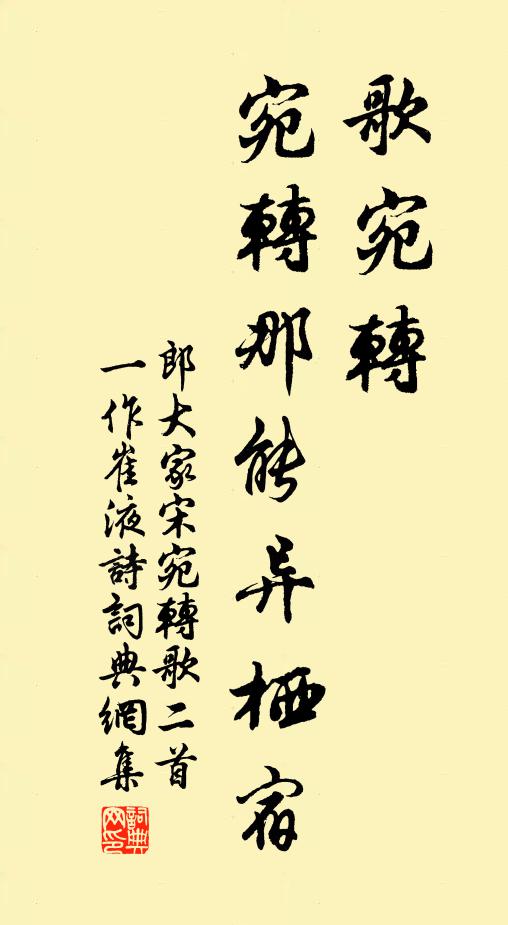 歌宛轉
宛轉那能异栖宿
郎大家宋宛轉歌二首
一作崔液詩詞典網集
詞典網印